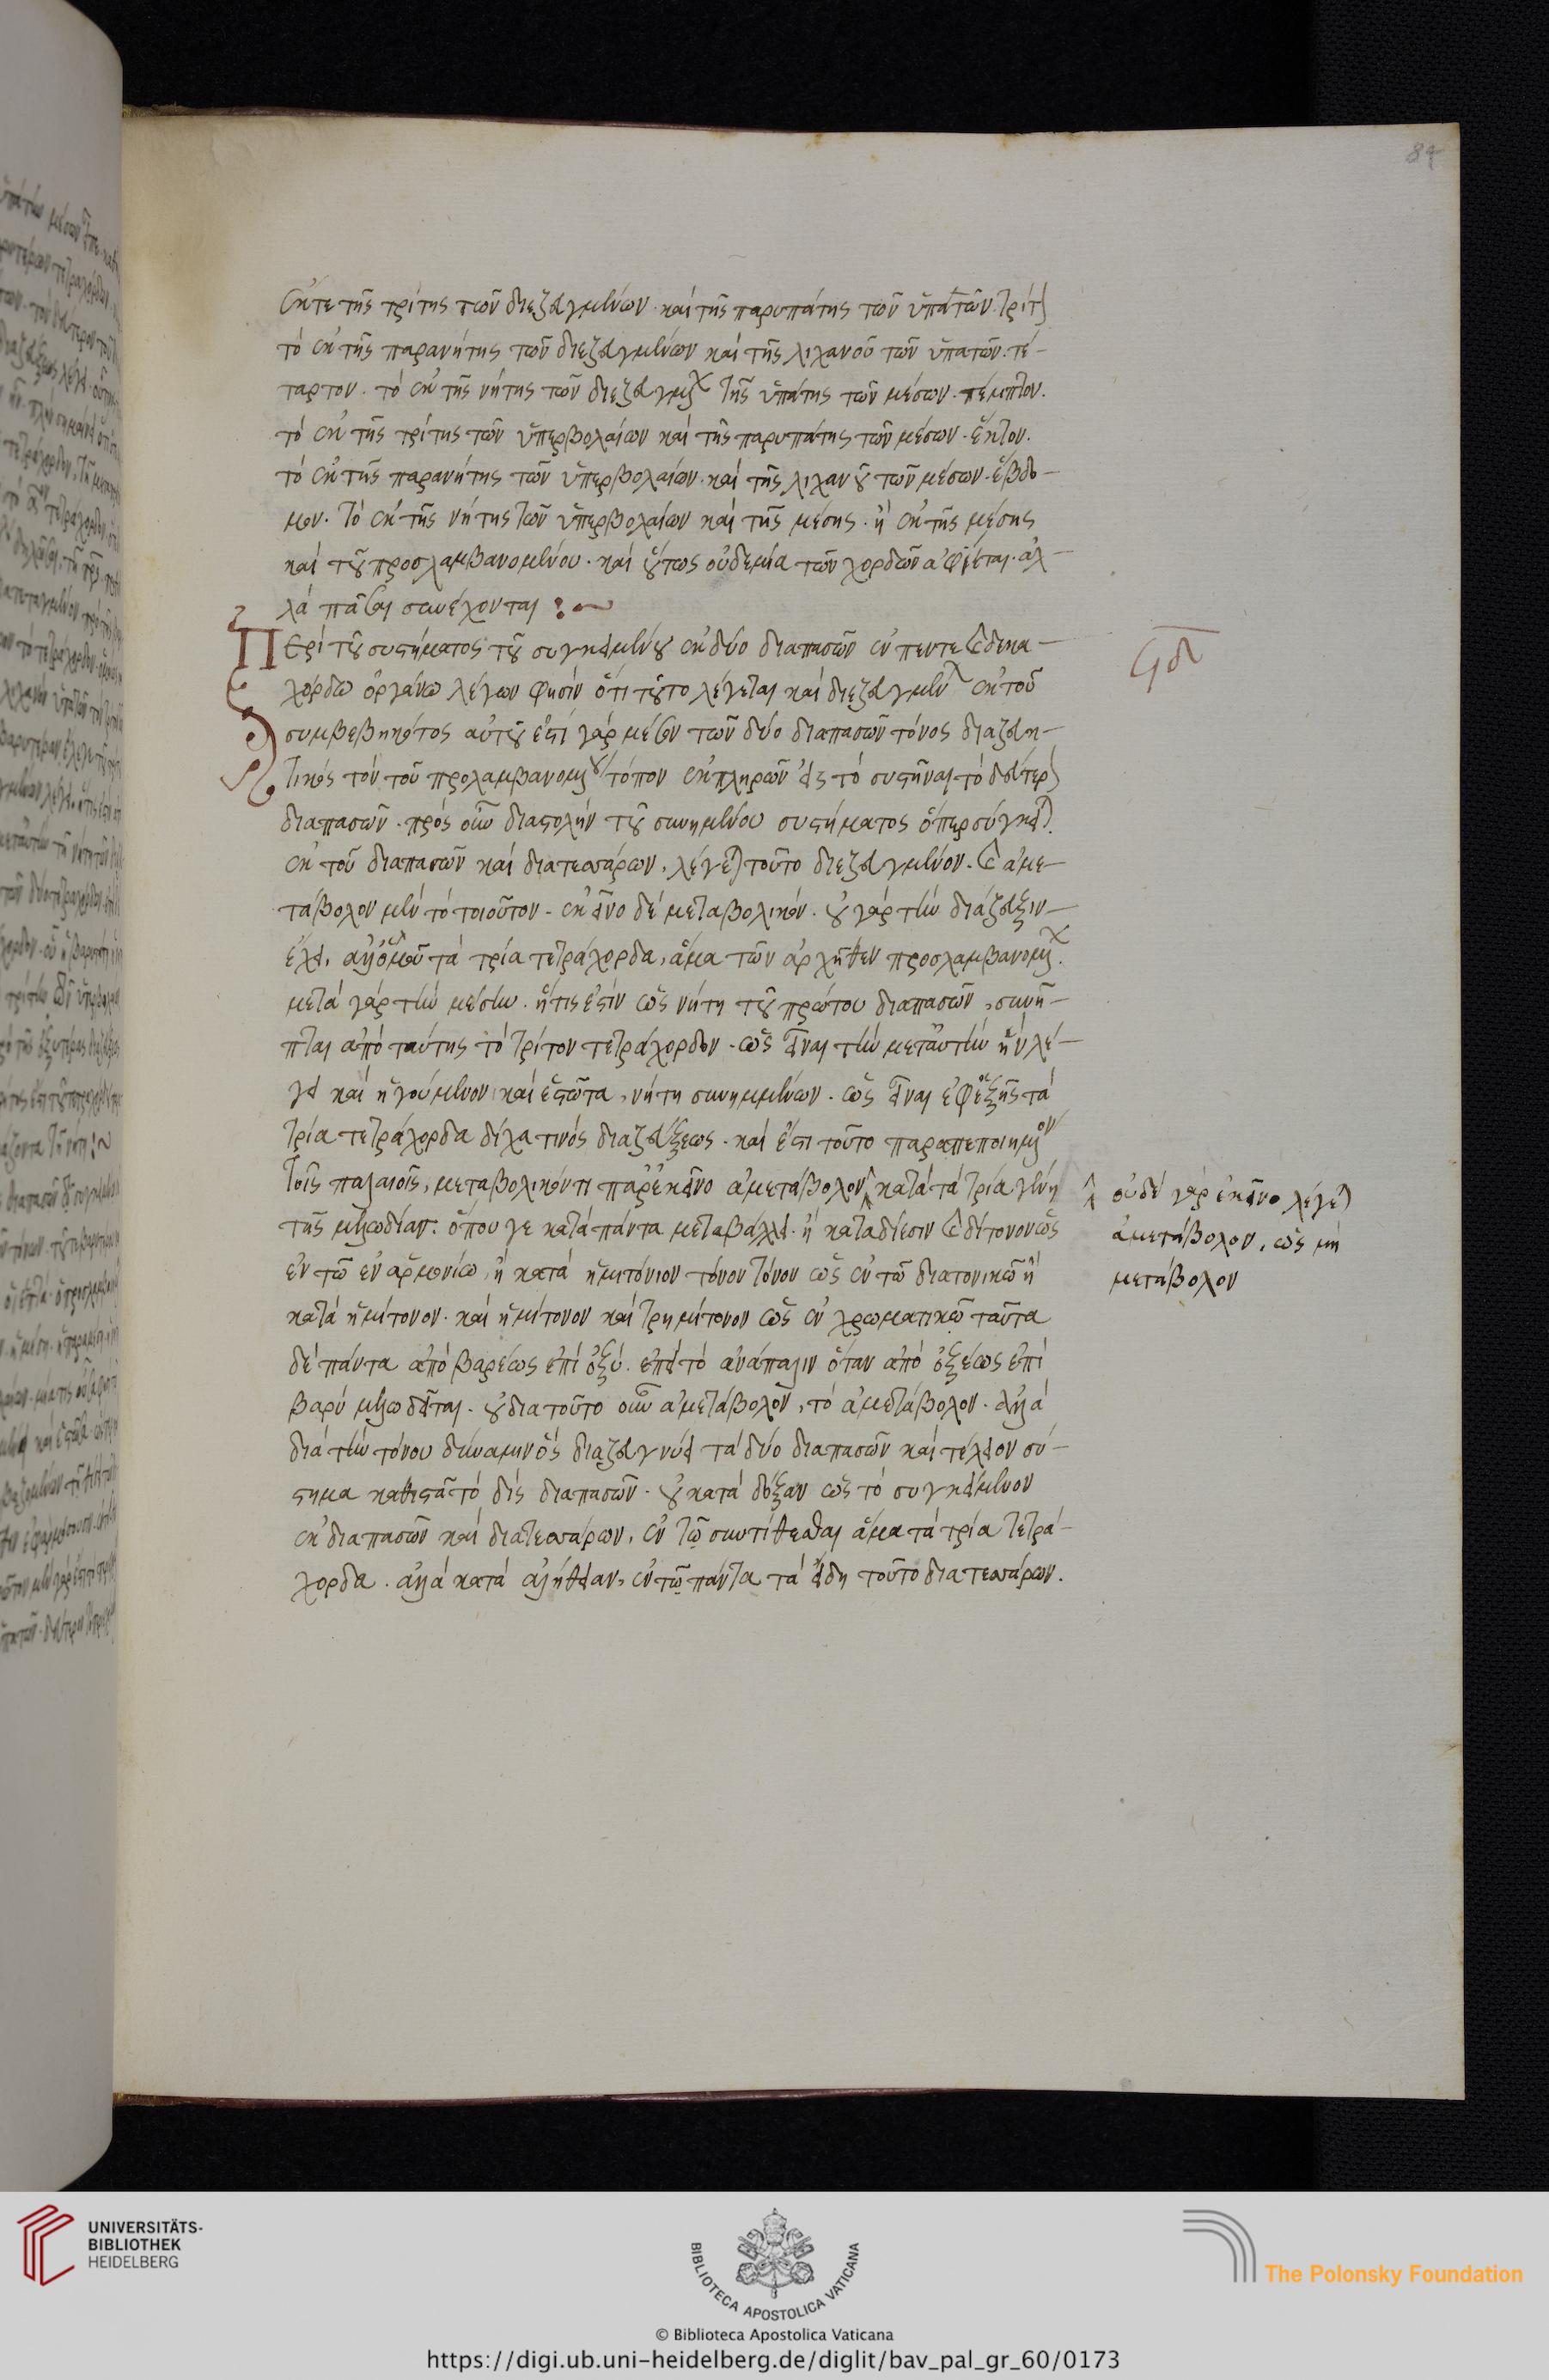 84
ἔκ τε τῆς τρίτης τῶν διεζευγμένων. καὶ τῆς παρυπάτης τῶν ὑπατῶν. τρίτον
τὸ ἐκ τῆς παρανήτης τῶν διεζευγμένων καὶ τῆς λιχανοῦ τῶν ὑπατῶν. τέ-
ταρτον. τὸ ἐκ τῆς νήτης τῶν διεζευγμένων τῆς ὑπάτης τῶν μέσων. πέμπτον.
τὸ ἐκ τῆς τρίτης τῶν ὑπερβολαίων καὶ τῆς παρυπάτης τῶν μέσων. ἕκτον.
τὸ ἐκ τῆς παρανήτης τῶν ὑπερβολαίων. καὶ τῆς λιχανοῦ τῶν μέσων. ἕβδο-
μον. τὸ ἐκ τῆς νήτης τῶν ὑπερβολαίων καὶ τῆς μέσης. ἢ ἐκ τῆς μέσης
καὶ τοῦ προσλαμβανομένου. καὶ οὕτως οὐδεμία τῶν χορδῶν ἀφίεται. ἀλ-
λὰ πᾶσαι συνέχονται :~
Περὶ τοῦ συστήματος τοῦ συγκειμένου ἐκ δύο διαπασῶν ἐν πεντεκαιδεκα-
χόρδω ὀργάνω λέγων φησὶν ὅτι τοῦτο λέγεται καὶ διεζευγμένον ἐκ τοῦ
συμβεβηκότος αὐτοῦ ἐστὶ γὰρ μέσον τῶν δύο διαπασῶν τόνος διαζευκ-
τικὸς τὸν τοῦ προλαμβανομένου τόπον ἐκπληρῶν εἰς τὸ συστῆναι τὸ δεύτερον
διαπασῶν. πρὸς οὖν διαστολὴν τοῦ συνημένου συστήματος ὅπερ σύγκειται
ἐκ τοῦ διαπασῶν καὶ διατεσσάρων, λέγεται τοῦτο διεζευγμένον. καὶ ἀμε-
τάβολον μὲν τὸ τοιοῦτον. ἐκεῖνο δὲ μεταβολικόν. οὐ γὰρ τὴν διάζευξιν
ἔχει, ἀλλ' ὁμοῦ τὰ τρία τετράχορδα, ἅμα τῶν ἀρχῆθεν προσλαμβανομένων.
μετὰ γὰρ τὴν μέσην. ἥτις ἐστὶν ὡς νήτη τοῦ πρώτου διαπασῶν, συνῆ-
πται ἀπὸ ταύτης τὸ τρίτον τετράχορδον. ὡς εἶναι τὴν μετ' αὐτὴν ἣν λέ-
γει καὶ ἡγούμενον καὶ ἑστῶτα, νήτη συνημμένων. ὡς εἶναι ἐφεξῆς τὰ
τρία τετράχορδα δίχα τινὸς διαζεύξεως. καὶ ἔστι τοῦτο παραπεποιημένον
τοῖς παλαιοῖς, μεταβολικόν τι παρ' ἐκεῖνο ἀμετάβολον κατὰ τὰ τρία γένη
τῆς μελωδίας. ὅπου γε κατὰ πάντα μεταβάλλει. ἢ κατὰ δίεσιν καὶ δίτονον ὡς
ἐν τῶ ἐναρμονίω, ἢ κατὰ ἡμιτόνιον τόνον τόνον ὡς ἐν τῶ διατονικῶ ἢ
κατὰ ἡμίτονον. καὶ ἡμίτονον καὶ τριημίτονον ὡς ἐν χρωματικῶ ταῦτα
δὲ πάντα ἀπὸ βαρέως ἐπὶ ὀξύ. ἐπεὶ τὸ ἀνάπαλιν ὅταν ἀπὸ ὀξέως ἐπὶ
βαρὺ μελωδεῖται. οὐ διὰ τοῦτο οὖν ἀμετάβολον, τὸ ἀμετάβολον. ἀλλὰ
διὰ τὴν τόνου δύναμιν ὃς διαζευγνύει τὰ δύο διαπασῶν καὶ τέλειον σύ-
στημα καθιστᾶ τὸ δὶς διαπασῶν. οὐ κατὰ δόξαν ὡς τὸ συγκείμενον
ἐκ διαπασῶν καὶ διατεσσάρων, ἐν τῶ συντίθεσθαι ἅμα τὰ τρία τετρά-
χορδα. ἀλλὰ κατὰ ἀλήθειαν, ἐν τῶ πάντα τὰ εἴδη τοῦ τὸ διατεσσάρων.
οὐδὲ γὰρ ἐκεῖνο λέγεται
ἀμετάβολον, ὡς μὴ
μετάβολον
UNIVERSITÄTS-
BIBLIOTHEK
HEIDELBERG
BIBLIOTECA APOSTOLICA VATICANA
The Polonsky Foundation
© Biblioteca Apostolica Vaticana
https://digi.ub.uni-heidelberg.de/diglit/bav_pal_gr_60/0173